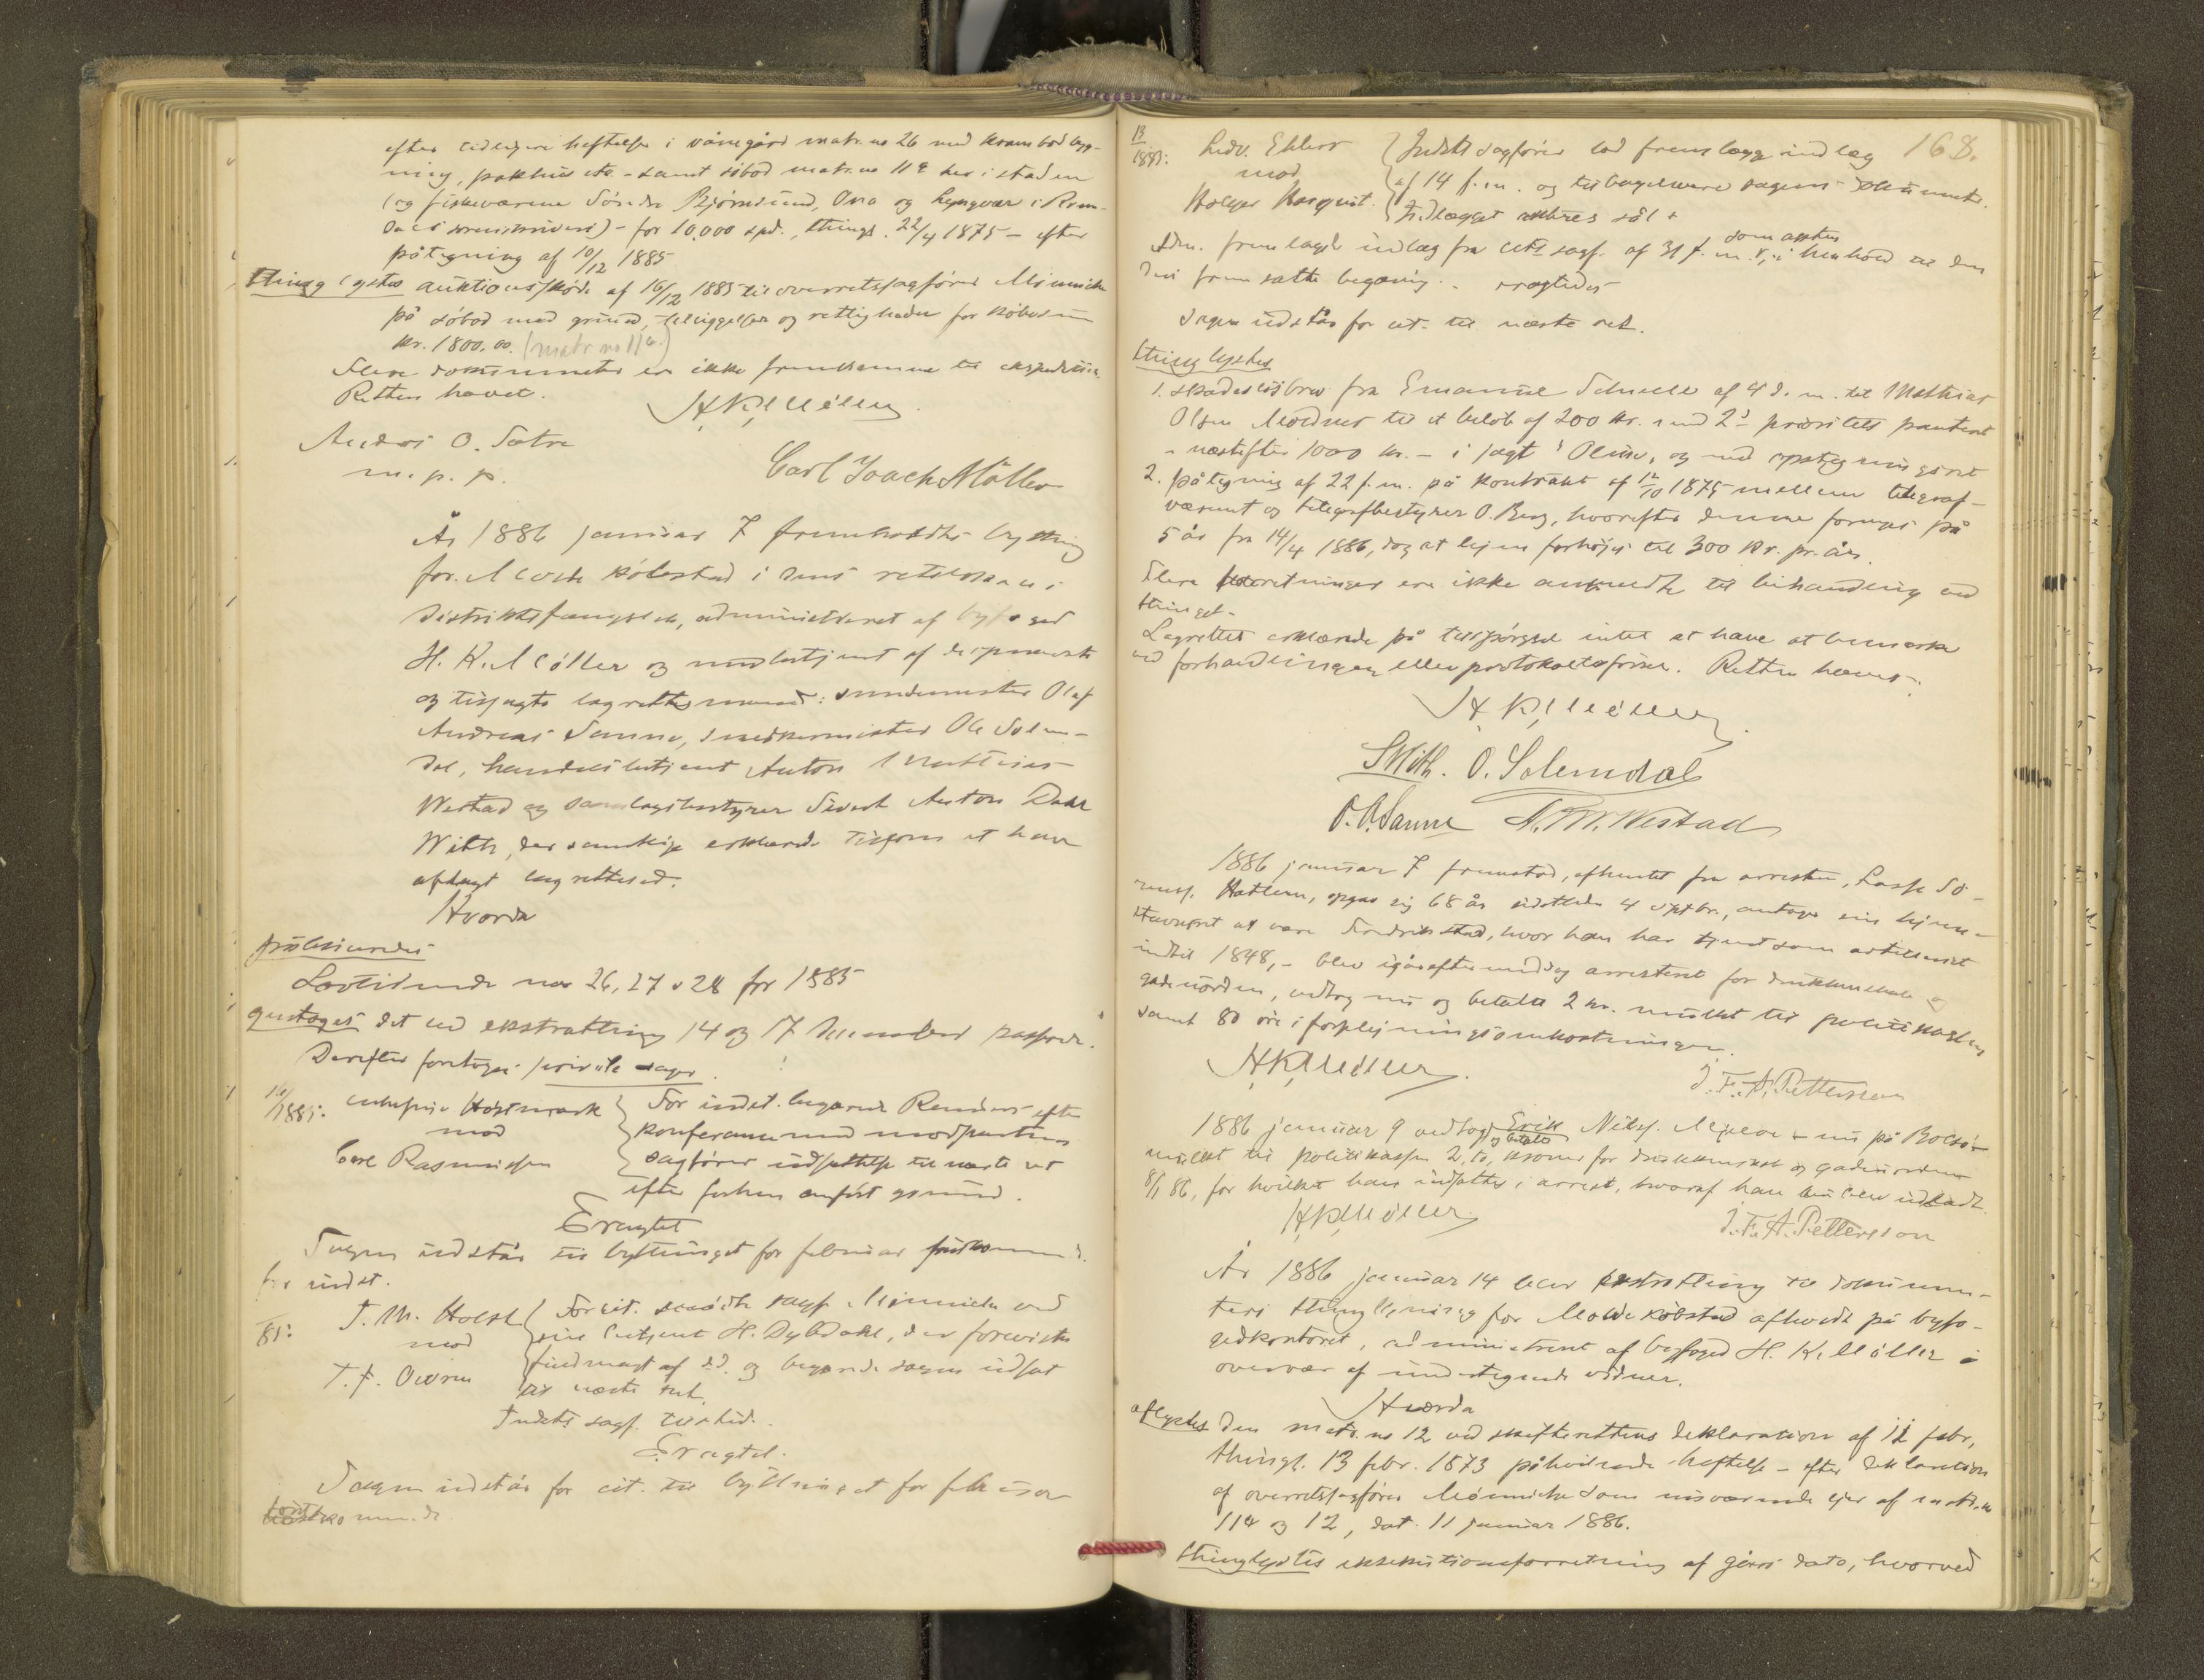 efter tidligere heftelse i våningård matr. no 26 med krambodbyg-
ning, pakhus etc. - samt søbod matr. no 11 a her i staden
(og fiskeværene Søndre Bjørnsund, Ona og Lyngvær i Rom-
dals sorenskriveri) - for 10,000 spd., thingl. 22/4 1875 - efter
påtegning af 10/12 1885
thinglystes auktionsskjøde af 16/12 1885 til overretssagfører Mönniche
på søbod med grund, tilliggelser og rettigheder for købesum
kr. 1800.00. (matr. no 11a.)
Flere dokumenter er ikke fremkomne til ekspedition.
Retten hævet.
H. K. Möller
Andreas O. Sætre
m. p. p.
Carl Joach Möller
År 1886 januar 7 fremholdtes bything
for Molde købstad i dens retslokale i
distriktsfængslet, administreret af byfoged
H. K. Möller og med betjent af de opnævnte
og tilsagte lagrettesmænd:
Andreas Sanne, snedkermester Ole Solem-
dal, handelsbetjent Anton Mathias
Westad og samlagsbestyrer Sivert Anton Dahl
With, der samtlige erklærede tilforn at have
aflagt lagrettesed.
Hvorda
publiceredes
Lovtidende no 26, 27 & 28 for 1885
gjentoges det ved ekstrathing 14 og 17 december passerede.
Derefter foretoges private sager.
16/1885: Høstmark
mod
Carl Rasmussen
For indst. begærede Randers efter
konference med modpartens
sagfører udsættelse til næste ret
efter forhen anført grund.
Eragtet
Sagen udstår til bythinget for februar førstkommende
for indst.
/85: J. M. Holst
mod
T. F. Owren
For cit. mødte sagf. Mönniche ved
sin betjent H. Dybdahl, der foreviste
fuldmagt af d.d. og begærede sagen udsat
til næste ret.
Indsts sagf. tilsted.
Eragtet.
Sagen udstår for cit. til bythinget for februar
førstkommende
168.
13/1885: Ludv. Ehlers
mod
Holger Harquist.
Indsts sagfører lod fremlægge indlæg
af 14 f. m. og tilbageleverede sagens dokumenter.
Indlægget
Adm. fremlagde indlæg fra cits sagf. af 31 f. m. i henhold til den
som
deri fremsatte begæring. eragtedes
Sagen udstår for cit. til næste ret.
thinglystes
1. skadesløsbrev fra Emanuel Schulle af 4 d. m. til Mathias
Olsen Moldnes til et beløb af 200 kr. med 2d prioritets panteret
- næstefter 1000 kr. - i jagt "Oline", og med opsigningsret
2. påtegning af 22 f. m. på kontrakt af 12/10 1875 mellem telegraf-
væsenet og telegrafbestyrer O. Berg, hvorefter denne fornyes på
5 år fra 14/4 1886, dog at lejen forhøjes til 300 kr. pr. år.
Flere forretninger ere ikke anmeldte til behandling ved
thinget.
Lagrettet erklærede på tilspørgsel intet at have at bemærke
ved forhandlingen eller protokoltilførsel. Retten hævet.
H. K. Möller
SWith. O. Solemdal
O. A. Sanne A. M. Westad
1886 januar 7 fremstod, afhentet fra arresten, Lasse Sö-
rens. Hatlem, opgav sig 68 år sidstleden 4 septbr., antager sin hjem-
stavnsret at være Fredrikstad, hvor han har tjent som artillerist
indtil 1848, - blev igåreftermiddag arresteret for drukkenskab og
gadeuorden, vedtog nu og betalte 2 kr. mulkt til politikassen
samt 80 øre i forplejningsomkostninger.
H. K. Möller.
J. F. A. Petterson
1886 januar 9 vedtog Erik Nils. - nu på Bolsö -
og betalte
mulkt til politikassen 2, to, kroner for drukkenskab og gadeuorden
8/1 86, for hvilket han indsattes i arrest, hvoraf han nu blev udladt.
H. K. Möller
J. F. A. Petterson
År 1886 januar 14 blev ekstrathing til dokumen-
ters thinglysning for Molde købstad afholdt på byfo-
gedkontoret, administreret af byfoged H. K. Möller i
overvær af undertegnede vidner.
Hvorda
aflystes den matr. no 12 ved skifterettens deklaration af 12 febr.,
thingl. 13 febr. 1873 påhvilende heftelse - efter deklaration
af overretssagfører Mönniche som nuværende ejer af matr. no
11a og 12, dat. 11 januar 1886.
thinglystes eksekutionsforretning af gårs dato, hvorved